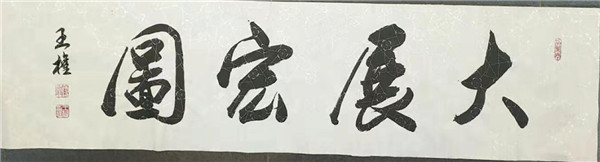 大展宏圖
王權